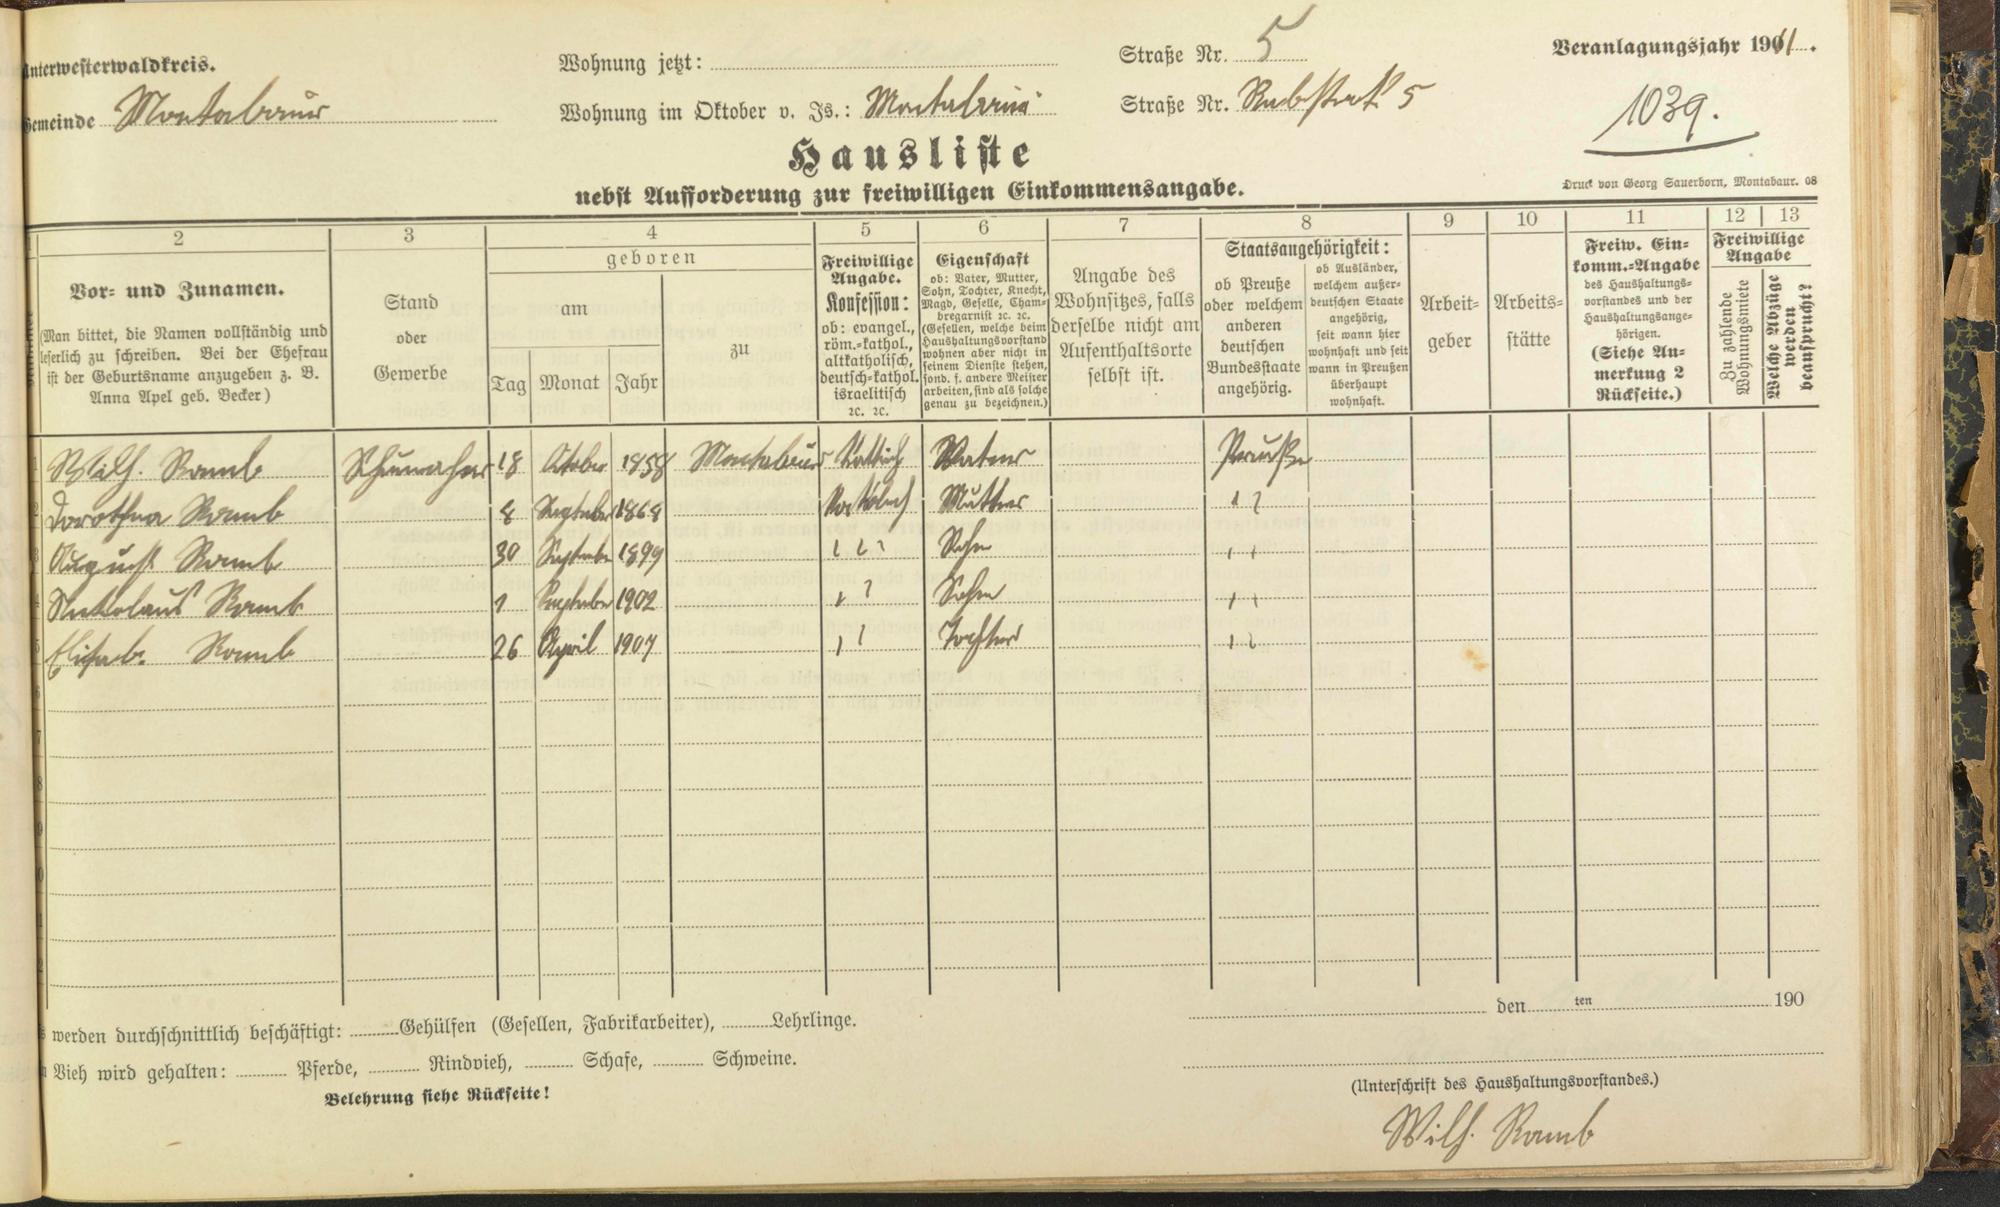 Unterwesterwaldkreis.
Wohnung jetzt:
Straße Nr. 5
Veranlagungsjahr 1911.
Gemeinde Montabaur
Wohnung im Oktober v. Js.: Montabaur
Straße Nr. 5
1039.
Hausliste
nebst Aufforderung zur freiwilligen Einkommensangabe.
Druck von Georg Sauerborn, Montabaur. 08
2 3 4 5 6 7 8 9 10 11 12 13
Vor- und Zunamen.
(Man bittet, die Namen vollständig und
leserlich zu schreiben. Bei der Ehefrau
ist der Geburtsname anzugeben z. B.
Anna Apel geb. Becker)
Stand
oder
Gewerbe
geboren
am
Tag Monat Jahr
zu
Freiwillige
Angabe.
Konfession:
ob: evangel.,
röm.-kathol.,
altkatholisch,
deutsch-kathol.
israelitisch
ꝛc. ꝛc.
Eigenschaft
ob: Vater, Mutter,
Sohn, Tochter, Knecht,
Magd, Geselle, Cham-
bregarnist ꝛc. ꝛc.
(Gesellen, welche beim
Haushaltungsvorstand
wohnen aber nicht in
seinem Dienste stehen,
sond. f. andere Meister
arbeiten, sind als solche
genau zu bezeichnen.)
Angabe des
Wohnsitzes, falls
derselbe nicht am
Aufenthaltsorte
selbst ist.
Staatsangehörigkeit:
ob Preuße
oder welchem
anderen
deutschen
Bundesstaate
angehörig.
ob Ausländer,
welchem außer-
deutschen Staate
angehörig,
seit wann hier
wohnhaft und seit
wann in Preußen
überhaupt
wohnhaft.
Arbeit-
geber
Arbeits-
stätte
Freiw. Ein-
komm.-Angabe
des Haushaltungs-
vorstandes und der
Haushaltungsange-
hörigen.
(Siehe An-
merkung 2
Rückseite.)
Freiwillige
Angabe
Zu zahlende
Wohnungsmiete
Welche Abzüge
werden
beansprucht?
1 Wilh. Romb Schumacher 18 Oktober 1858 Montabaur Kattolisch Vater Preuße
2 Dorothea Romb 8 September 1868 Katolisch Mutter " "
3 August Romb 30 September 1899 " " " Sohn " "
4 Nikolaus Romb 1 September 1902 " " Sohn " "
5 Elisab. Romb 26 April 1907 " " Tochter " "
6
7
8
9
10
werden durchschnittlich beschäftigt: Gehülfen (Gesellen, Fabrikarbeiter), Lehrlinge.
den ten 190
Vieh wird gehalten: Pferde, Rindvieh, Schafe, Schweine.
(Unterschrift des Haushaltungsvorstandes.)
Belehrung siehe Rückseite!
Wilh. Romb